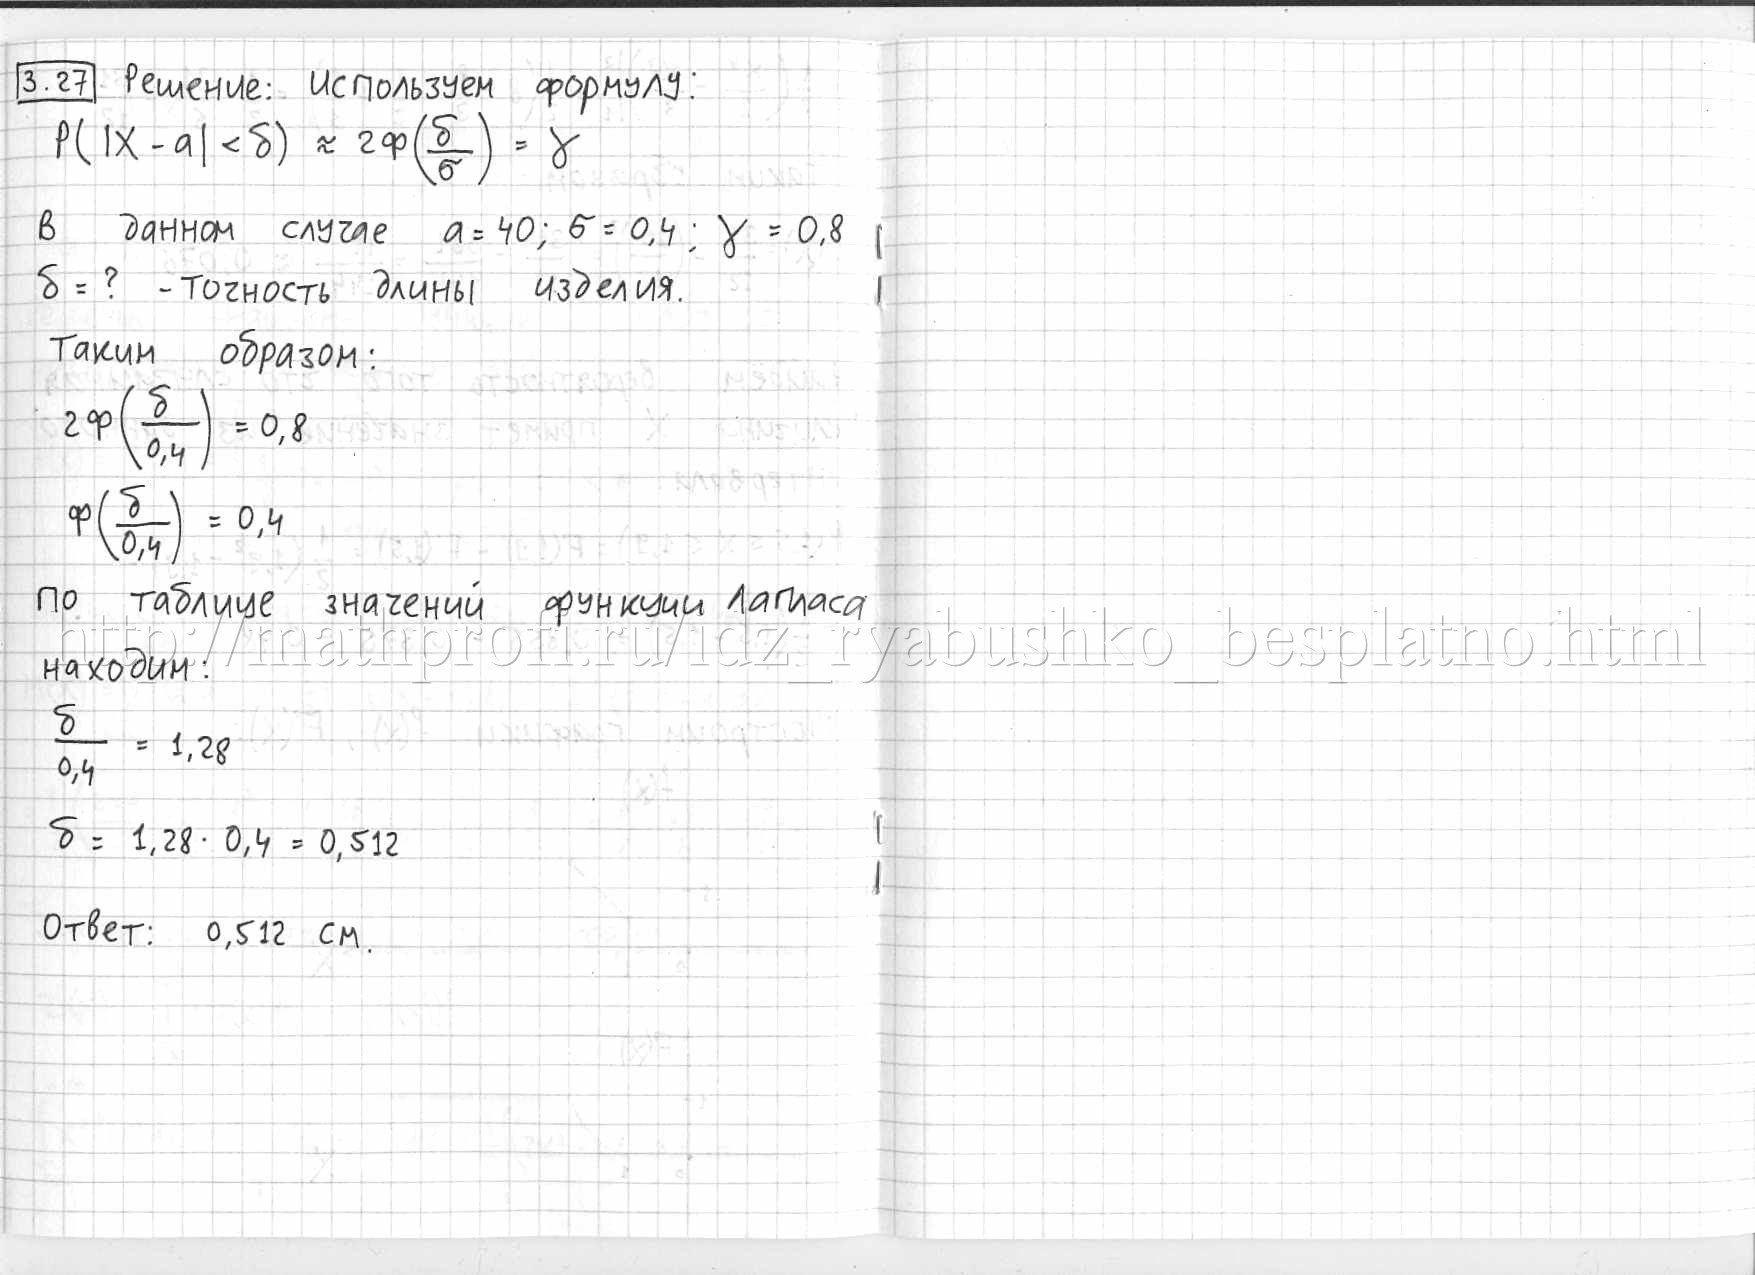 3.27 Решение: Используем формулу:
P(|X - a| < δ) ≈ 2Ф(δ/σ) = γ
В данном случае a = 40; σ = 0,4; γ = 0,8
δ = ? - точность длины изделия.
Таким образом:
2Ф(δ/0,4) = 0,8
Ф(δ/0,4) = 0,4
По таблице значений функции Лапласа
http://mathprofi.ru/idz_ryabushko_besplatno.html
находим:
δ/0,4 = 1,28
δ = 1,28 · 0,4 = 0,512
Ответ: 0,512 см.